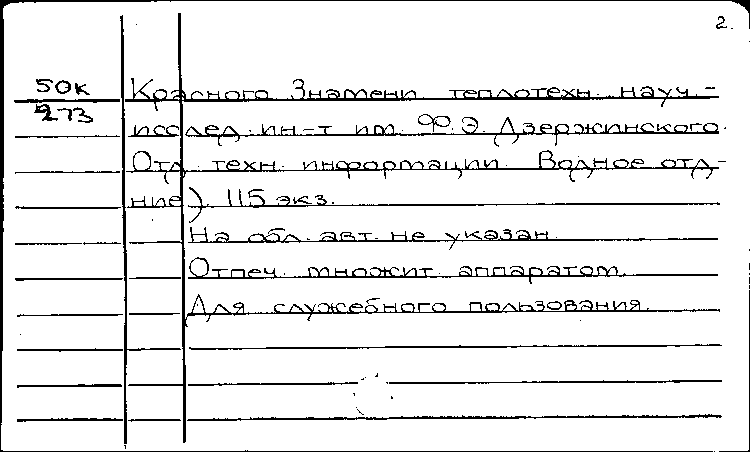 2.
50к Красного Знамени теплотехн. науч.-
273 исслед. ин-т им. Ф.Э. Дзержинского.
Отд. техн. информации. Водное отд-
ние). 115 экз.
На обл. авт. не указан.
Отпеч. множит. аппаратом.
Для служебного пользования.